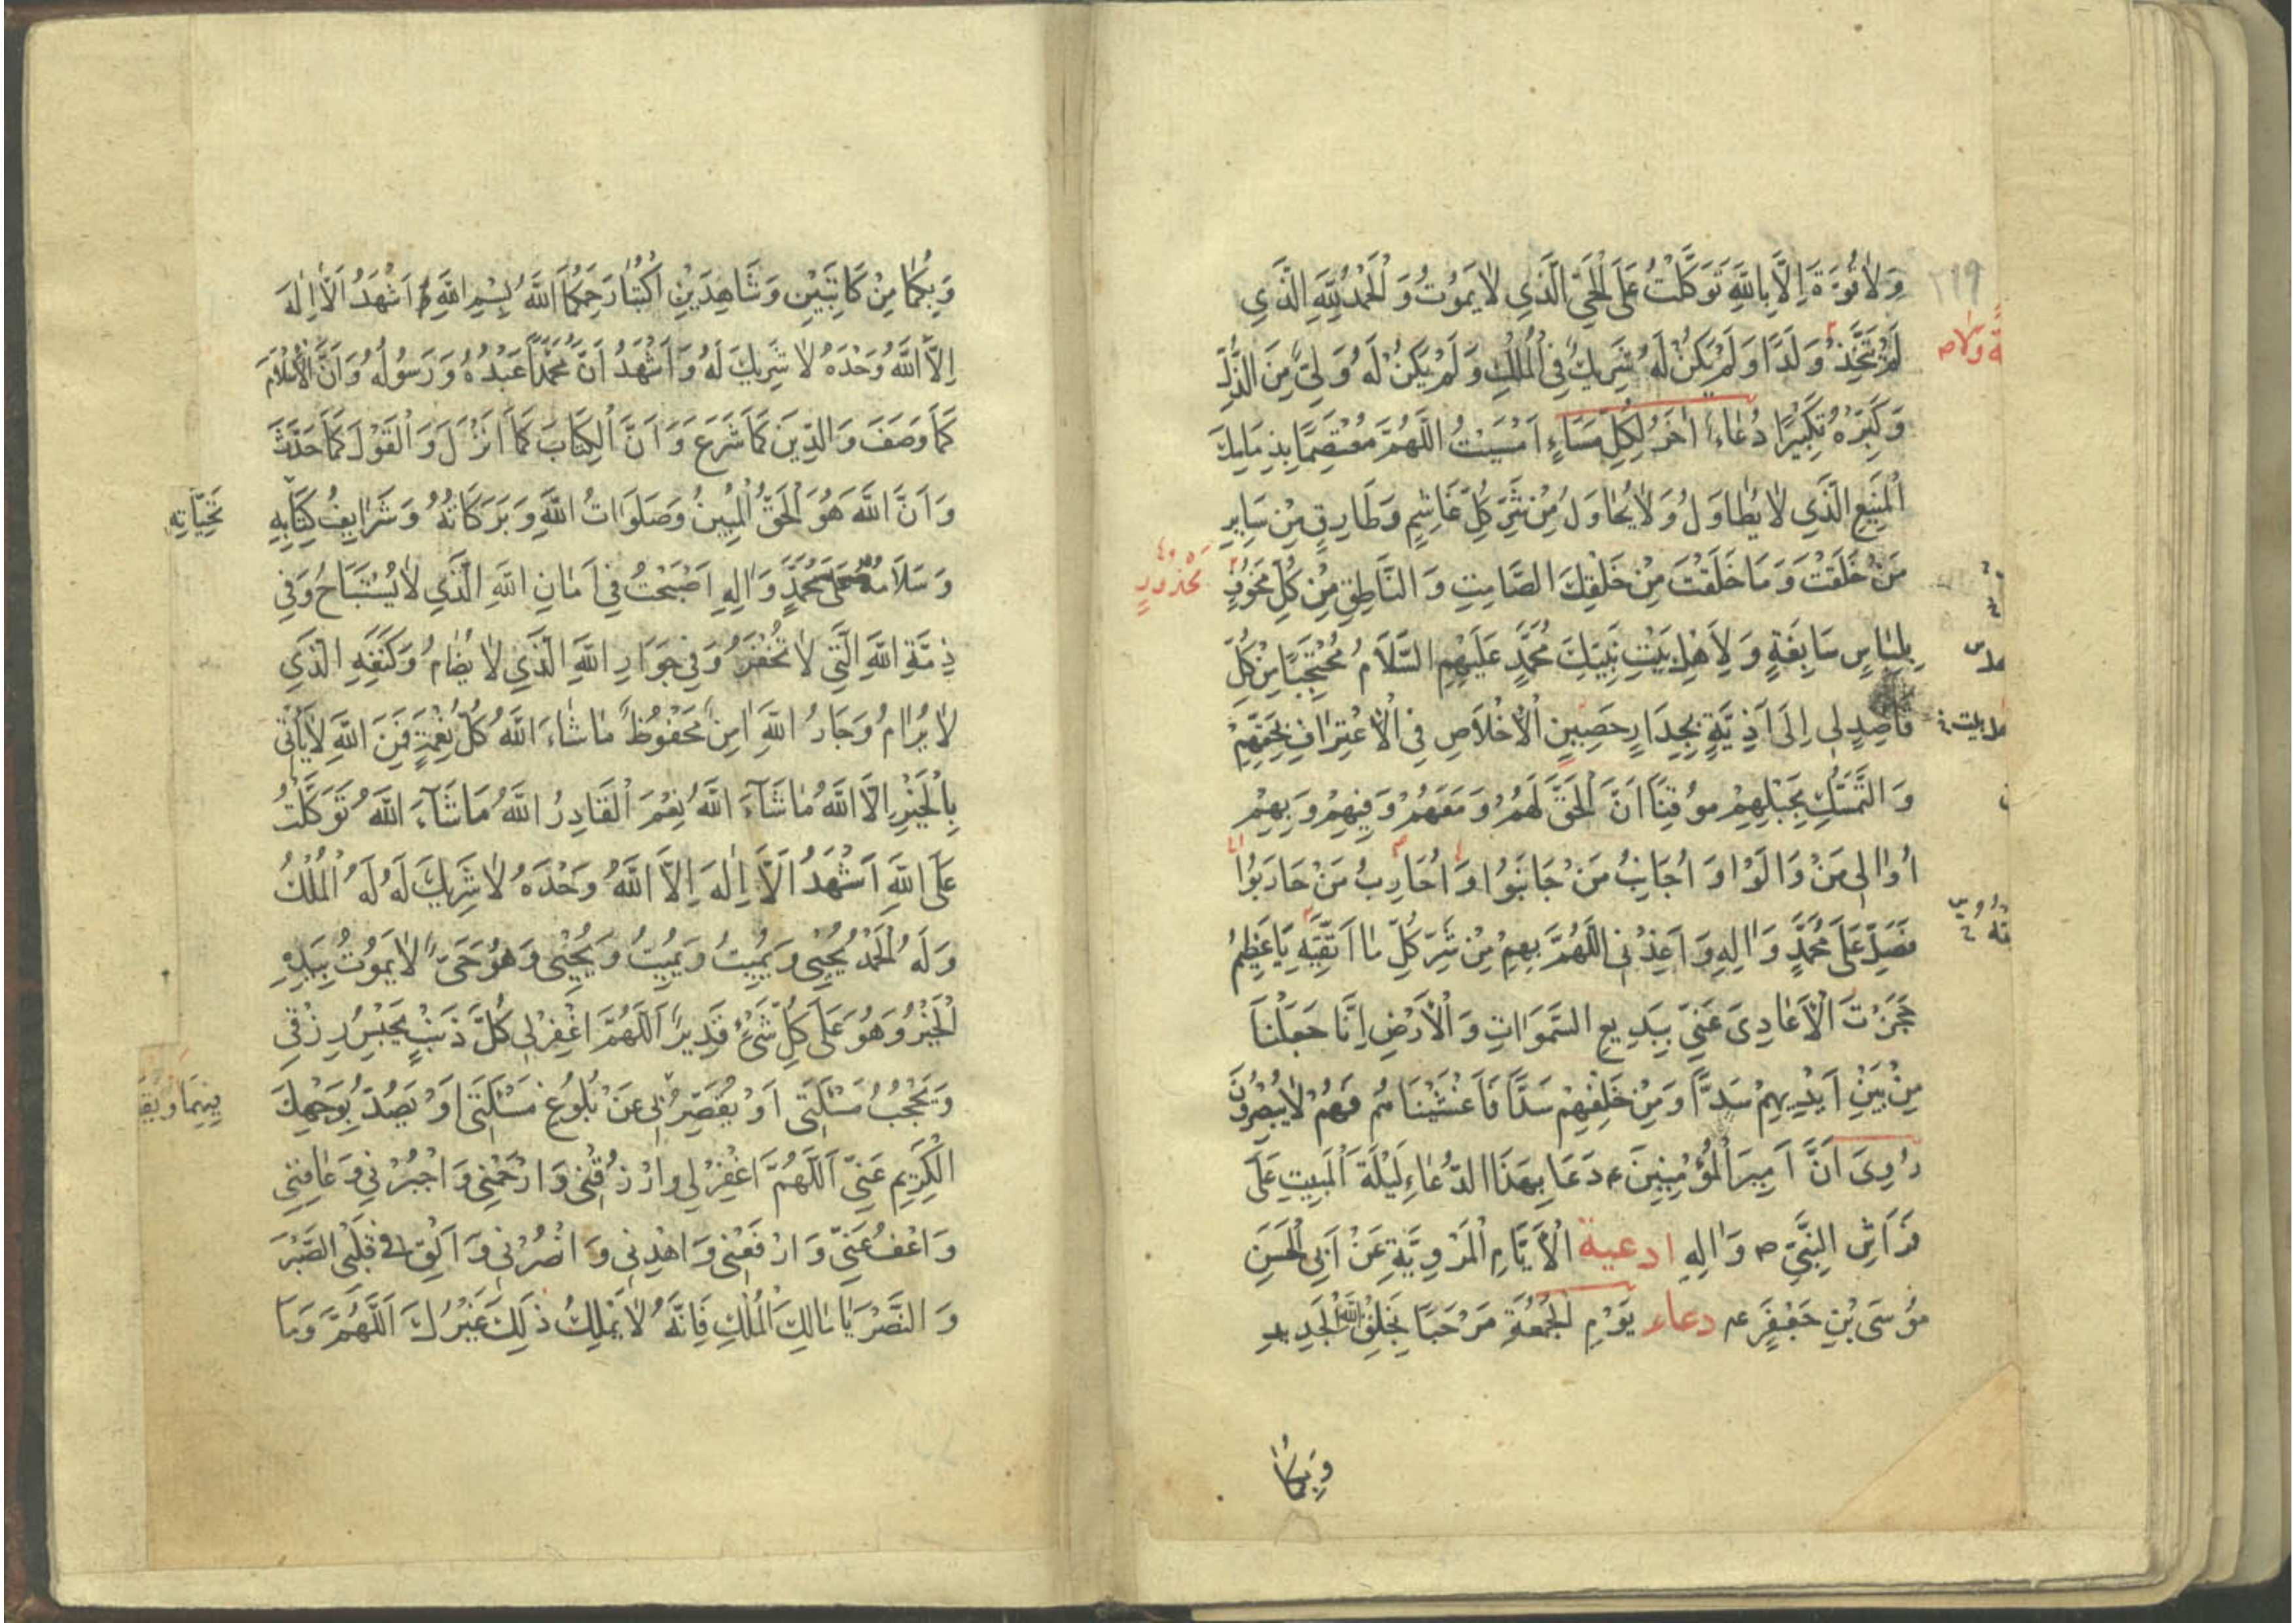 وَلَا قُوَّةَ اِلَّا بِاللّٰهِ تَوَكَّلْتُ عَلَى الْحَيِّ الَّذِي لَا يَمُوتُ وَالْحَمْدُ لِلّٰهِ الَّذِي
لَمْ يَتَّخِذْ وَلَدًا وَلَمْ يَكُنْ لَهُ شَرِيكٌ فِي الْمُلْكِ وَلَمْ يَكُنْ لَهُ وَلِيٌّ مِنَ الذُّلِّ
وَكَبِّرْهُ تَكْبِيرًا دُعَاءٌ اٰخَرُ لِكُلِّ مَسَاءٍ اَمْسَيْتُ اللّٰهُمَّ مُعْتَصِمًا بِذِمَامِكَ
الْمَنِيعِ الَّذِي لَا يُطَاوَلُ وَلَا يُحَاوَلُ مِنْ شَرِّ كُلِّ غَاشِمٍ وَطَارِقٍ مِنْ سَايِرِ
مَنْ خَلَقْتَ وَمَا خَلَقْتَ مِنْ خَلْقِكَ الصَّامِتِ وَالنَّاطِقِ مِنْ كُلِّ
بِلِبَاسٍ سَابِغَةٍ وَلَاءِ اَهْلِ بَيْتِ نَبِيِّكَ مُحَمَّدٍ عَلَيْهِمُ السَّلَامُ مُحْتَجِبًا مِنْ كُلِّ
قَاصِدٍ لِي اِلَى اَذِيَّةٍ بِجِدَارٍ حَصِينٍ الْاِخْلَاصِ فِي الْاِعْتِرَافِ بِحَقِّهِمْ
وَالتَّمَسُّكِ بِحَبْلِهِمْ مُوقِنًا اَنَّ الْحَقَّ لَهُمْ وَمَعَهُمْ وَفِيهِمْ وَبِهِمْ
اُوَالِي مَنْ وَالَوْا وَاُجَانِبُ مَنْ جَانَبُوا وَاُحَارِبُ مَنْ حَارَبُوا
فَصَلِّ عَلَى مُحَمَّدٍ وَاٰلِهِ وَاَعِذْنِي اللّٰهُمَّ بِهِمْ مِنْ شَرِّ كُلِّ مَا اَتَّقِيهِ يَا عَظِيمُ
حَجَزْتَ الْاَعَادِيَ عَنِّي بِبَدِيعِ السَّمَوَاتِ وَالْاَرْضِ اِنَّا جَعَلْنَا
مِنْ بَيْنِ اَيْدِيهِمْ سَدًّا وَمِنْ خَلْفِهِمْ سَدًّا فَاَغْشَيْنَاهُمْ فَهُمْ لَا يُبْصِرُونَ
رُوِيَ اَنَّ اَمِيرَ الْمُؤْمِنِينَ ع دَعَا بِهَذَا الدُّعَاءِ لَيْلَةَ الْمَبِيتِ عَلَى
فِرَاشِ النَّبِيِّ ص وَاٰلِهِ ادعية الْاَيَّامِ الْمَرْوِيَّةِ عَنْ اَبِي الْحَسَنِ
مُوسَى بْنِ جَعْفَرٍ ع دعاء يَوْمِ الْجُمْعَةِ مَرْحَبًا بِخَلْقِ اللّٰهِ الْجَدِيدِ
وَبِكُمَا
وَبِكُمَا مِنْ كَاتِبَيْنِ وَشَاهِدَيْنِ اُكْتُبَا رَحِمَكُمَا اللّٰهُ بِسْمِ اللّٰهِ اَشْهَدُ اَلَّا اِلٰهَ
اِلَّا اللّٰهُ وَحْدَهُ لَا شَرِيكَ لَهُ وَاَشْهَدُ اَنَّ مُحَمَّدًا عَبْدُهُ وَرَسُولُهُ وَاَنَّ الْاِسْلَامَ
كَمَا وَصَفَ وَالدِّينَ كَمَا شَرَعَ وَاَنَّ الْكِتَابَ كَمَا اَنْزَلَ وَالْقَوْلَ كَمَا حَدَّثَ
وَاَنَّ اللّٰهَ هُوَ الْحَقُّ الْمُبِينُ وَصَلَوَاتُ اللّٰهِ وَبَرَكَاتُهُ وَشَرَايِفُ
تَحِيَّاتِهِ
وَسَلَامُهُ عَلَى مُحَمَّدٍ وَاٰلِهِ اَصْبَحْتُ فِي اَمَانِ اللّٰهِ الَّذِي لَا يُسْتَبَاحُ وَفِي
ذِمَّةِ اللّٰهِ الَّتِي لَا تُخْفَرُ وَفِي جِوَارِ اللّٰهِ الَّذِي لَا يُضَامُ وَكَنَفِهِ الَّذِي
لَا يُرَامُ وَجَارُ اللّٰهِ اٰمِنٌ مَحْفُوظٌ مَا شَاءَ اللّٰهُ كُلُّ نِعْمَةٍ فَمِنَ اللّٰهِ لَا يَأْتِي
بِالْخَيْرِ اِلَّا اللّٰهُ مَا شَآءَ اللّٰهُ نِعْمَ الْقَادِرُ اللّٰهُ مَا شَآءَ اللّٰهُ تَوَكَّلْتُ
عَلَى اللّٰهِ اَشْهَدُ اَلَّا اِلٰهَ اِلَّا اللّٰهُ وَحْدَهُ لَا شَرِيكَ لَهُ لَهُ الْمُلْكُ
وَلَهُ الْحَمْدُ يُحْيِي وَيُمِيتُ وَيُمِيتُ وَيُحْيِي وَهُوَ حَيٌّ لَا يَمُوتُ بِيَدِهِ
الْخَيْرُ وَهُوَ عَلَى كُلِّ شَيْءٍ قَدِيرٌ اَللّٰهُمَّ اغْفِرْ لِي كُلَّ ذَنْبٍ يَحْبِسُ رِزْقِي
وَيَحْجُبُ مَسْئَلَتِي اَوْ يُقَصِّرُ بِي عَنْ بُلُوغِ مَسْئَلَتِي اَوْ يَصُدُّ بِوَجْهِكَ
الْكَرِيمِ عَنِّي اَللّٰهُمَّ اغْفِرْ لِي وَارْزُقْنِي وَارْحَمْنِي وَاجْبُرْنِي وَعَافِنِي
وَاعْفُ عَنِّي وَارْفَعْنِي وَاهْدِنِي وَانْصُرْنِي وَاَلْقِ فِي قَلْبِي الصَّبْرَ
وَالنَّصْرَ يَا مَالِكَ الْمُلْكِ فَاِنَّهُ لَا يَمْلِكُ ذَلِكَ غَيْرُكَ اَللّٰهُمَّ وَمَا